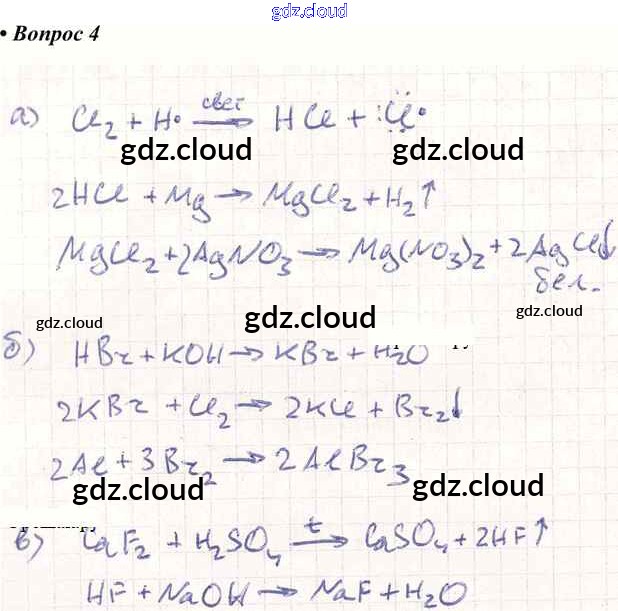 gdz.cloud
• Вопрос 4
а) Cl₂ + H• —свет→ HCl + :Cl•
gdz.cloud gdz.cloud
2HCl + Mg → MgCl₂ + H₂↑
MgCl₂ + 2AgNO₃ → Mg(NO₃)₂ + 2AgCl↓
бел.
gdz.cloud gdz.cloud gdz.cloud
б) HBr + KOH → KBr + H₂O
2KBr + Cl₂ → 2KCl + Br₂↓
2Al + 3Br₂ → 2AlBr₃
gdz.cloud gdz.cloud
в) CaF₂ + H₂SO₄ —t→ CaSO₄ + 2HF↑
HF + NaOH → NaF + H₂O